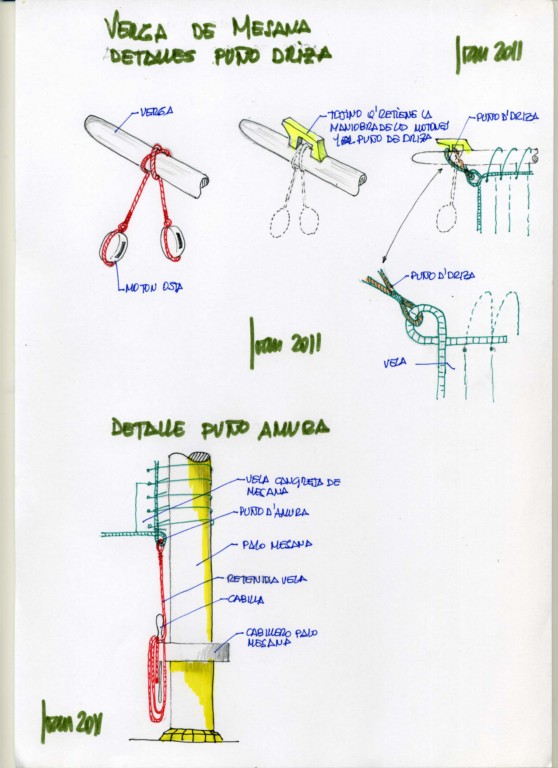 VERGA DE MESANA
DETALLES PUÑO DRIZA
2011
VERGA
TOJINO Q' RETIENE LA
MANIOBRA DE LOS MOTONES
Y EL PUÑO DE DRIZA
PUÑO D'DRIZA
MOTON OSTA
PUÑO D'DRIZA
VELA
2011
DETALLE PUÑO AMURA
VELA CANGREJA DE
MESANA
PUÑO D'AMURA
PALO MESANA
RETENIDA VELA
CABILLA
CABILLERO PALO
MESANA
2011